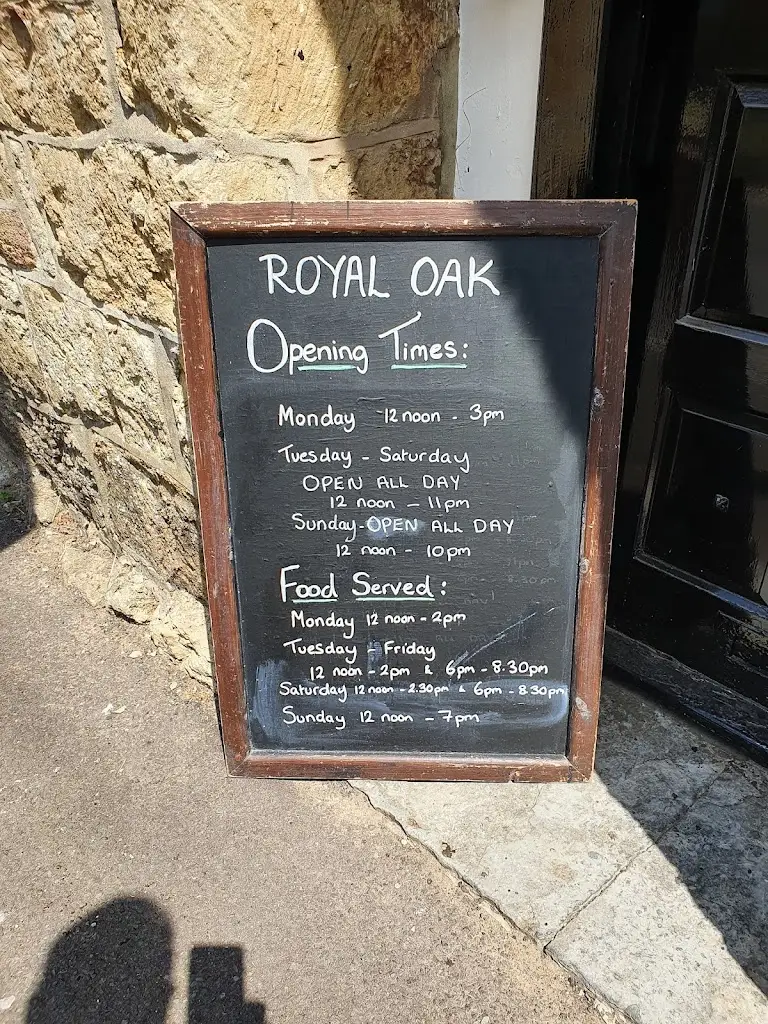 ROYAL OAK
Opening Times:
Monday 12 noon - 3pm
Tuesday - Saturday
OPEN ALL DAY
12 noon - 11pm
Sunday - OPEN ALL DAY
12 noon - 10pm
Food Served:
Monday 12 noon - 2pm
Tuesday - Friday
12 noon - 2pm & 6pm - 8.30pm
Saturday 12 noon - 2.30pm & 6pm - 8.30pm
Sunday 12 noon - 7pm